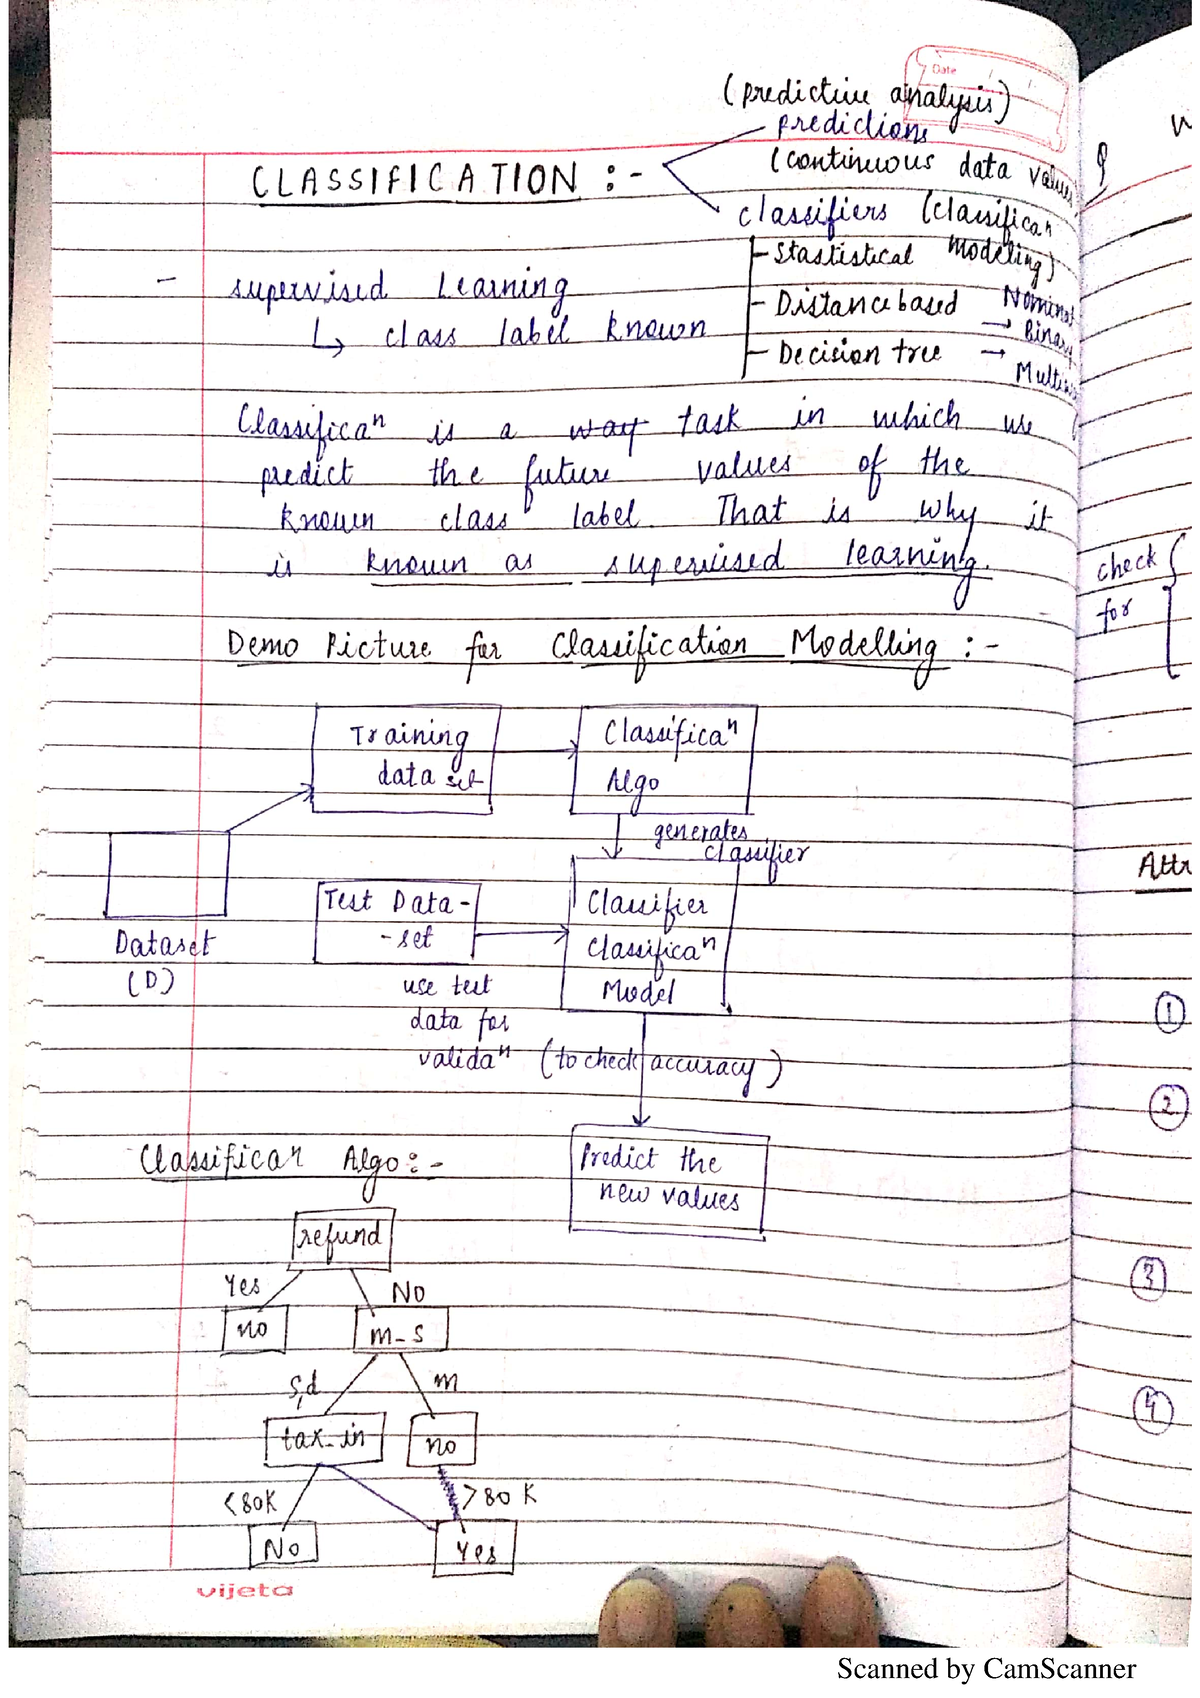 Date
(predictive analysis)
predictions
(continuous data values
CLASSIFICATION :-
classifiers (classificaⁿ
Modeling)
- Stastistical
- supervised Learning
↳ class label known
- Distance based
Nominal
→ Binary
- Decision tree →
Classificaⁿ is a ~~way~~ task in which we
predict the future values of the
known class label. That is why it
is known as supervised learning.
check
for
Demo Picture for Classification Modelling :-
Training
data set
Classificaⁿ
Algo
generates
classifier
Attr
Test Data-
-set
Classifier
Classificaⁿ
Model
Dataset
(D)
use test
data for
validaⁿ (to check accuracy)
①
②
Predict the
new values
Classificaⁿ Algo:-
refund
Yes
No
no
m-s
③
s,d
m
tax-in
no
④
<80K
>80 K
No
Yes
vijeta
Scanned by CamScanner